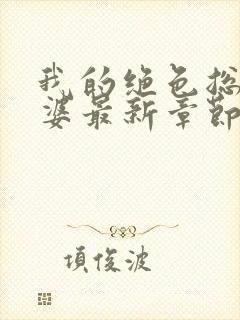 我的绝色总
婆最新章节
项俊波